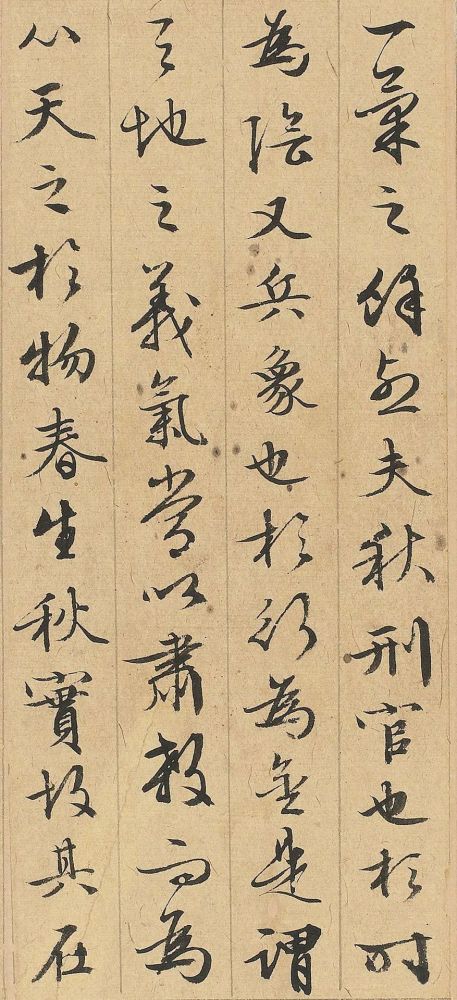 一氣之餘烈夫秋刑官也於時
為陰又兵象也於行為金是謂
天地之義氣常以肅殺而為
心天之於物春生秋實故其在